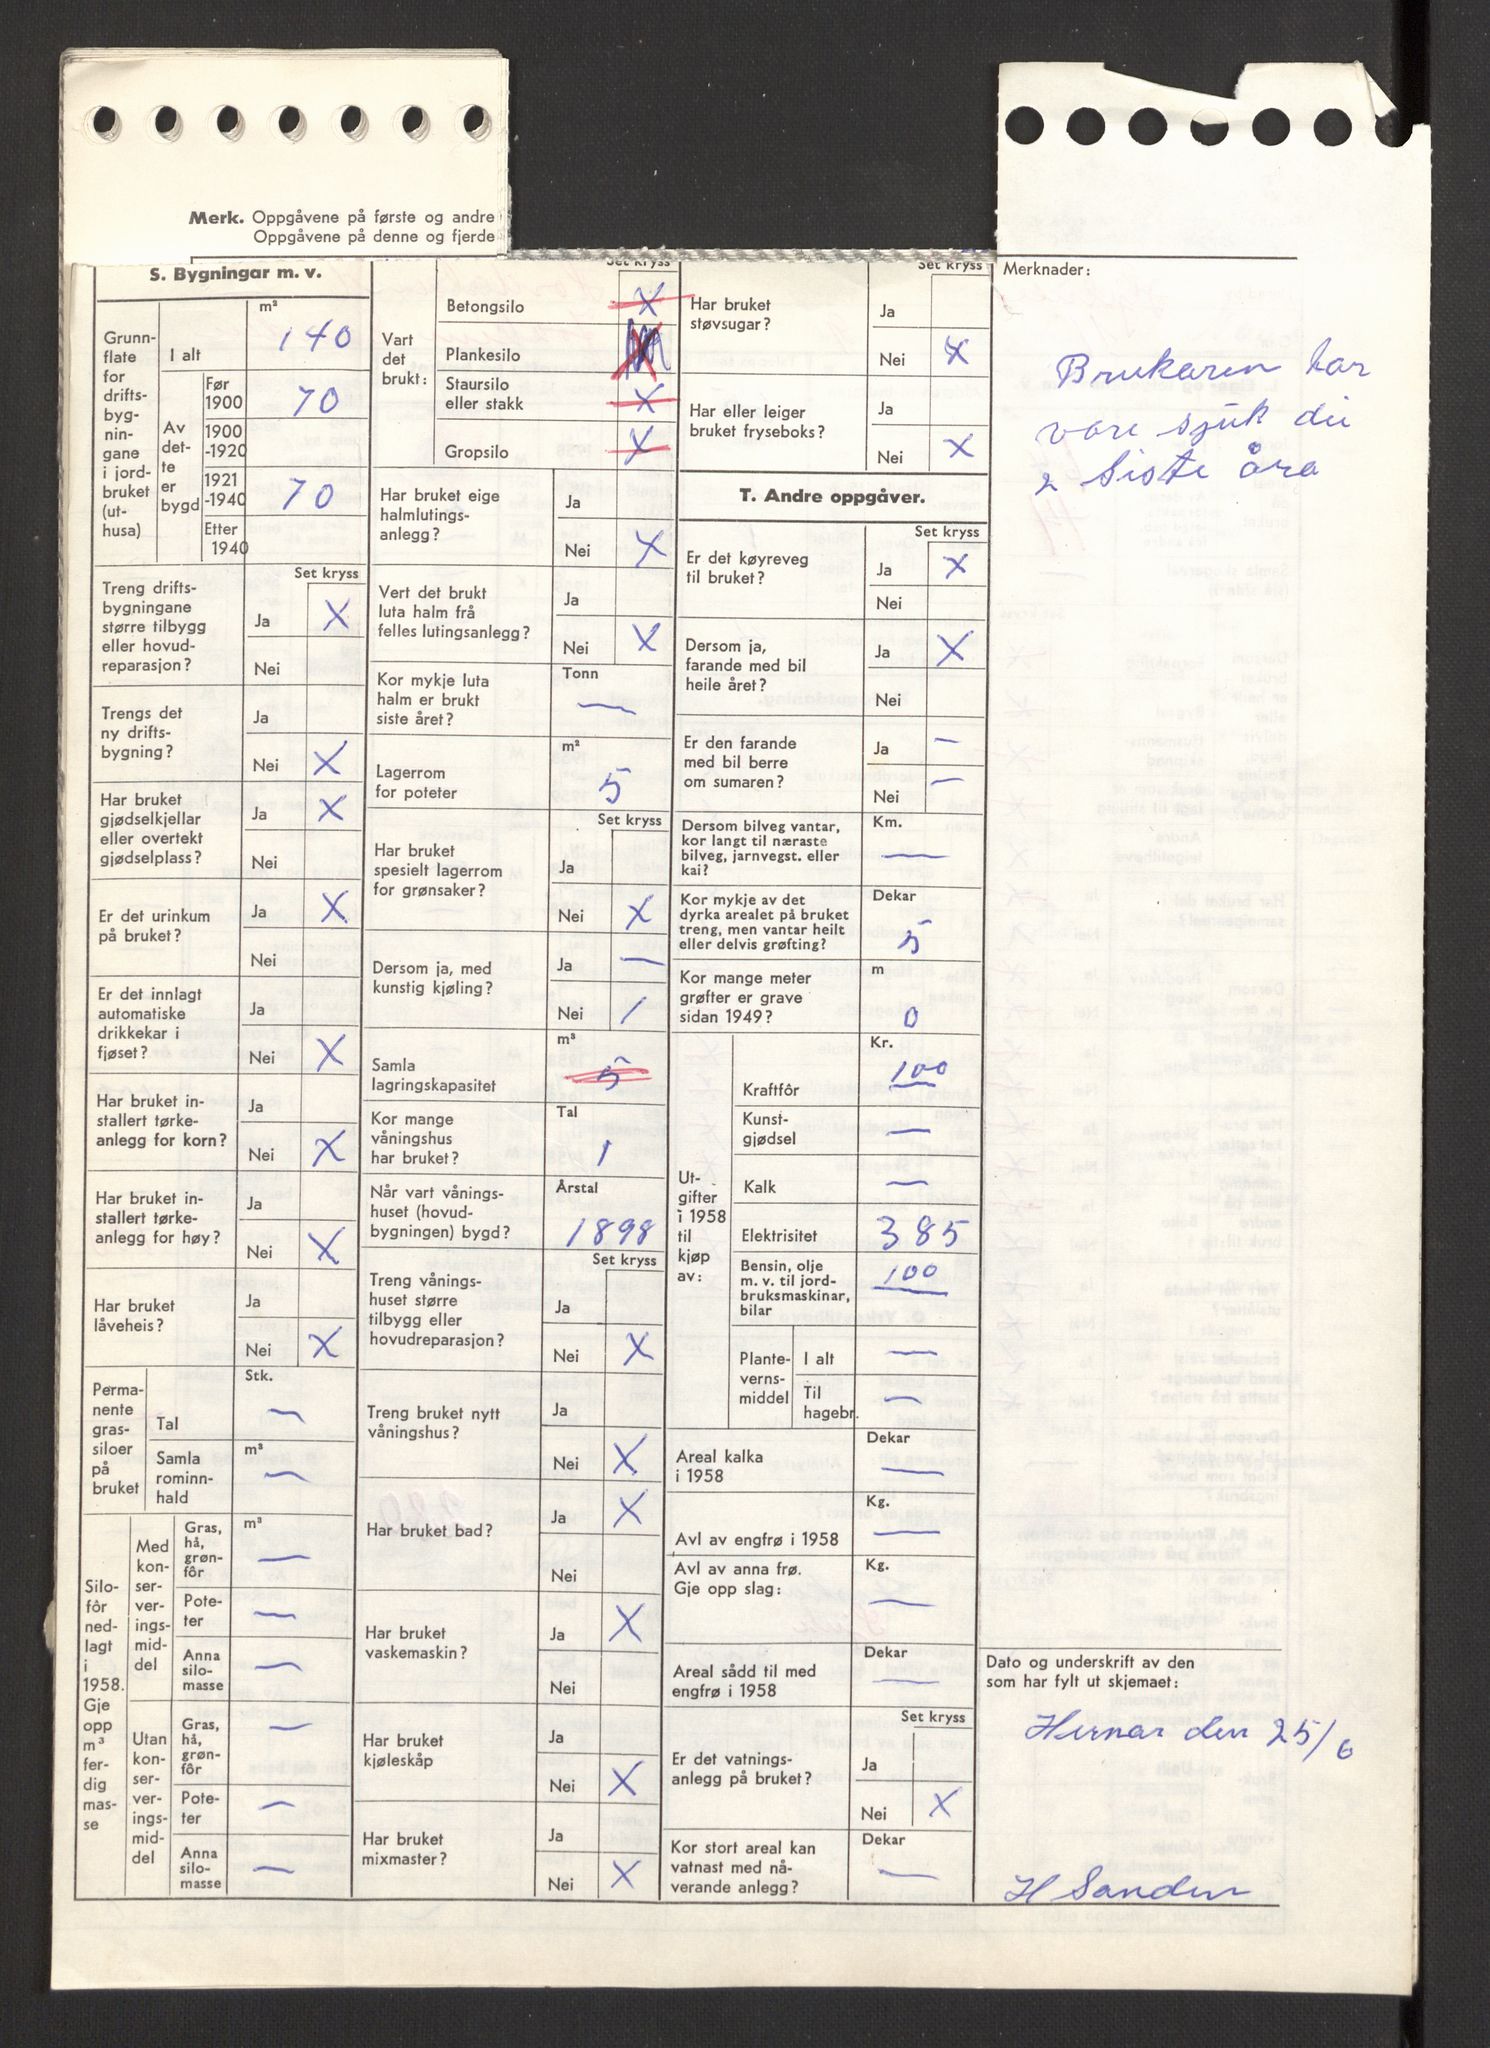 Merk. Oppgåvene på første og andre
Oppgåvene på denne og fjerde
S. Bygningar m. v.
Grunn-
flate
for
drifts-
byg-
nin-
gane
i jord-
bruket
(ut-
husa)
m²
I alt 140
Av
det-
te
er
bygd
Før
1900 70
1900
-1920
1921
-1940 70
Etter
1940
Set kryss
Treng drifts-
bygningane
større tilbygg
eller hovud-
reparasjon?
Ja X
Nei
Trengs det
ny drifts-
bygning?
Ja
Nei X
Har bruket
gjødselkjellar
eller overtekt
gjødselplass?
Ja X
Nei
Er det urinkum
på bruket?
Ja X
Nei
Er det innlagt
automatiske
drikkekar i
fjøset?
Ja
Nei X
Har bruket in-
stallert tørke-
anlegg for korn?
Ja
Nei X
Har bruket in-
stallert tørke-
anlegg for høy?
Ja
Nei X
Har bruket
låveheis?
Ja
Nei X
Perma-
nente
gras-
siloer
på
bruket
Stk.
Tal —
Samla
rominn-
hald
m³ —
Silo-
fôr
ned-
lagt
i
1958.
Gje
opp
m³
fer-
dig
mas-
se
Med
kon-
ser-
ver-
ings-
mid-
del
m³
Gras,
hå,
grøn-
fôr —
Pote-
ter —
Anna
silo-
masse —
Utan
kon-
ser-
ver-
ings-
mid-
del
Gras,
hå,
grøn-
fôr —
Pote-
ter —
Anna
silo-
masse —
Set kryss
Vart
det
brukt:
Betongsilo X
Plankesilo X
Staursilo
eller stakk X
Gropsilo X
Har bruket eige
halmlutings-
anlegg?
Ja
Nei X
Vert det brukt
luta halm frå
felles lutingsanlegg?
Ja
Nei X
Kor mykje luta
halm er brukt
siste året?
Tonn
—
Lagerrom
for poteter
m²
5
Set kryss
Har bruket
spesielt lagerrom
for grønsaker?
Ja
Nei X
Dersom ja, med
kunstig kjøling?
Ja —
Nei /
Samla
lagringskapasitet
m³
5
Kor mange
våningshus
har bruket?
Tal
1
Når vart vånings-
huset (hovud-
bygningen) bygd?
Årstal
1898
Set kryss
Treng vånings-
huset større
tilbygg eller
hovudreparasjon?
Ja
Nei X
Treng bruket nytt
våningshus?
Ja
Nei X
Har bruket bad?
Ja X
Nei
Har bruket
vaskemaskin?
Ja X
Nei
Har bruket
kjøleskåp
Ja
Nei X
Har bruket
mixmaster?
Ja
Nei X
Set kryss
Har bruket
støvsugar?
Ja
Nei X
Har eller leiger
bruket fryseboks?
Ja
Nei X
T. Andre oppgåver.
Set kryss
Er det køyreveg
til bruket?
Ja X
Nei
Dersom ja,
farande med bil
heile året?
Ja X
Nei
Er den farande
med bil berre
om sumaren?
Ja —
Nei —
Dersom bilveg vantar,
kor langt til næraste
bilveg, jarnvegst. eller
kai?
Km.
—
Kor mykje av det
dyrka arealet på bruket
treng, men vantar heilt
eller delvis grøfting?
Dekar
5
Kor mange meter
grøfter er grave
sidan 1949?
m
0
Ut-
gifter
i 1958
til
kjøp
av:
Kr.
Kraftfôr 100
Kunst-
gjødsel —
Kalk —
Elektrisitet 385
Bensin, olje
m. v. til jord-
bruksmaskinar,
bilar 100
Plante-
verns-
middel
I alt —
Til
hagebr. —
Areal kalka
i 1958
Dekar
—
Avl av engfrø i 1958
Kg.
—
Avl av anna frø.
Gje opp slag:
Kg.
—
Areal sådd til med
engfrø i 1958
Dekar
—
Set kryss
Er det vatnings-
anlegg på bruket?
Ja
Nei X
Kor stort areal kan
vatnast med nå-
verande anlegg?
Dekar
—
Merknader:
Brukaren har
vore sjuk dei
2 siste åra
Dato og underskrift av den
som har fylt ut skjemaet:
Hernar den 25/6
H Sanden